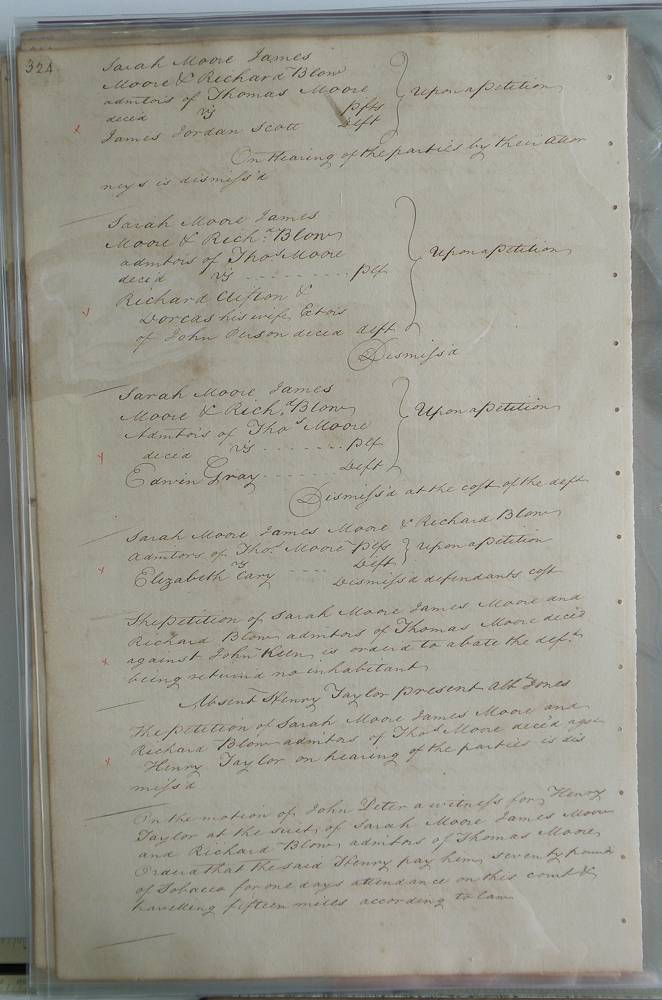 324
Sarah Moore James
Moore & Richard Blow
admtors of Thomas Moore
decėd vs plfs
James Jordan Scott Deft
Upon a Petition
On Hearing of the parties by their Attor
neys is dismiss'd
Sarah Moore James
Moore & Richd. Blow
admtors of Thos Moore
decėd vs - - - - - - - plf
Richard Clifton &
Dorcas his wife Extors
of John Person decėd deft
Upon a Petition
Dismiss'd
Sarah Moore James
Moore & Richd. Blow
Admtors of Thos Moore
decėd vs - - - - - - plf
Edwin Gray - - - - - - Deft
Upon a Petition
Dismiss'd at the cost of the deft
Sarah Moore James Moore & Richard Blow
admtors of Thos. Moore plfs
vs Deft
Upon a Petition
Elizabeth Cary - - - - Dismiss'd defendants cost
The petition of Sarah Moore James Moore and
Richard Blow admtors of Thomas Moore decėd
against John Keen is orderd to abate the deft
being returnd no inhabitant
Absent Henry Taylor present Albt Jones
The petition of Sarah Moore James Moore and
Richard Blow admtors of Thos Moore decėd agst
Henry Taylor on hearing of the parties is dis
miss'd
On the motion of John Peter a witness for Henry
Taylor at the suit of Sarah Moore James Moore
and Richard Blow admtors of Thomas Moore
Orderd that the said Henry pay him seventy pounds
of Tobacco for one days attendance on this court &
travelling fifteen miles according to law